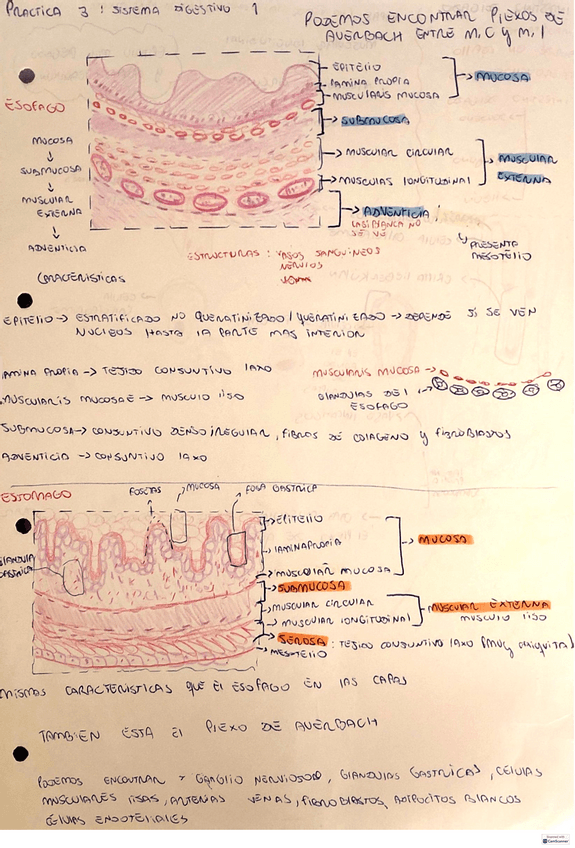 PRACTICA 3 : SISTEMA DIGESTIVO 1
PODEMOS ENCONTRAR PLEXOS DE
AUERBACH ENTRE M.C y M.l
ESÓFAGO
MUCOSA
↓
SUBMUCOSA
↓
MUSCULAR
EXTERNA
↓
ADVENTICIA
EPITELIO
LAMINA PROPIA
MUSCULARIS MUCOSA
MUCOSA
SUBMUCOSA
MUSCULAR CIRCULAR
MUSCULAS LONGITUDINAL
MUSCULAR
EXTERNA
ADVENTICIA
LAS BLANCA NO
SE VE
PRESENTA
MESOTELIO
ESTRUCTURAS : VASOS SANGUINEOS
NERVIOS
CARACTERISTICAS
EPITELIO → ESTRATIFICADO NO QUERATINIZADO / QUERATINIZADO → DEPENDE SI SE VEN
NUCLEOS HASTA LA PARTE MAS INTERIOR
LAMINA PROPIA → TEJIDO CONJUNTIVO LAXO
MUSCULARIS MUCOSAE → MUSCULO LISO
MUSCULARIS MUCOSA
GLANDULAS DEL
ESOFAGO
SUBMUCOSA → CONJUNTIVO DENSO IRREGULAR, FIBRAS DE COLAGENO y FIBROBLASTOS
ADVENTICIA → CONJUNTIVO LAXO
ESTOMAGO
FOSETAS
MUCOSA
FOSA GASTRICA
GLANDULA
GASTRICA
EPITELIO
LAMINA PROPIA
MUSCULAR MUCOSA
MUCOSA
SUBMUCOSA
MUSCULAR CIRCULAR
MUSCULAR LONGITUDINAL
MUSCULAR EXTERNA
MUSCULO LISO
SEROSA : TEJIDO CONJUNTIVO LAXO (MUY CHIQUITA)
MESOTELIO
MISMAS CARACTERISTICAS QUE EL ESOFAGO EN LAS CAPAS
TAMBIEN ESTA EL PLEXO DE AUERBACH
PODEMOS ENCONTRAR → GANGLIO NERVIOSO, GLANDULAS GASTRICAS, CELULAS
MUSCULARES LISAS, ARTERIAS VENAS, FIBROBLASTOS, ADIPOCITOS BLANCOS
CELULAS ENDOTELIALES
CamScanner